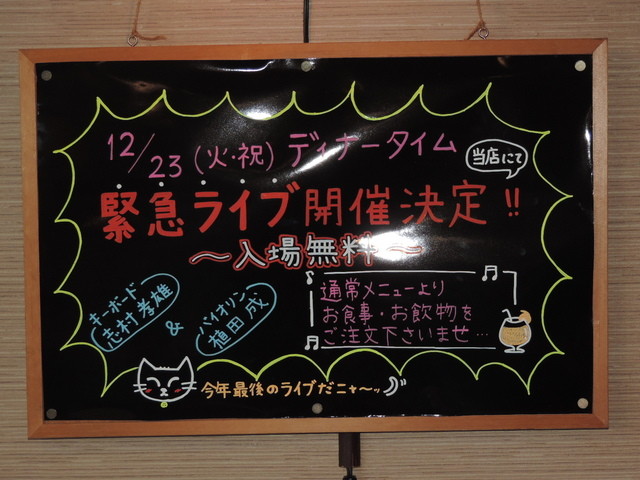 12/23(火・祝)ディナータイム
当店にて
緊急ライブ開催決定!!
～入場無料～
キーボード
志村孝雄
&
バイオリン
植田成
通常メニューより
お食事・お飲物を
ご注文下さいませ…
今年最後のライブだニャ～ッ